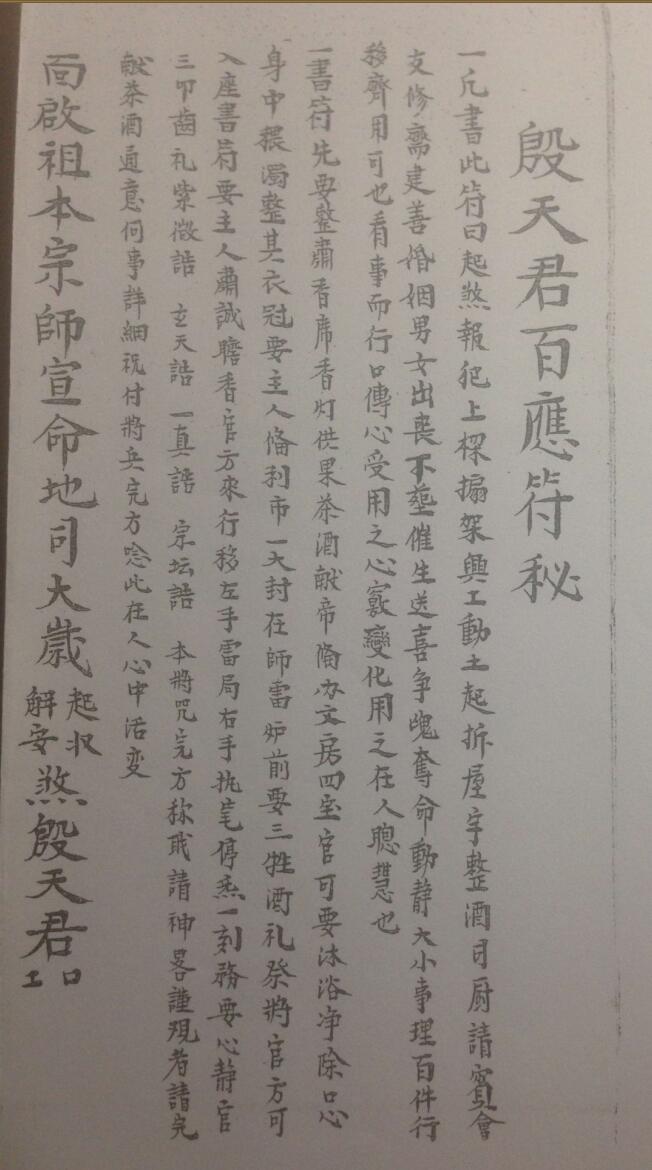 殷天君百應符秘
一凡書此符曰起煞報犯上樑搧架興工動土起拆屋宇整酒司厨請賓會
支修齋建善婚姻男女出喪不塟催生送喜争魂奪命動静大小事理百件行
移齊用可也看事而行口傳心受用之心竅變化用之在人聰慧也
一書符先要整肅香席香灯供果茶酒献帝俻办文房四宝官可要沐浴净除口心
身中穢濁整其衣冠要主人俻利市一大封在師雷炉前要三牲酒礼祭將官方可
入座書符要主人肅誠瞻香官方來行移左手雷局右手执笔停炁一刻務要心静官
三叩齒礼紫微誥 玄天誥 一真誥 宗坛誥 本將咒完方称職請神畧謹覌者請完
献茶酒通意何事詳細祝付將兵完方念此在人心中活变
面啟祖本宗師宣命地司大歲起収解安煞殷天君